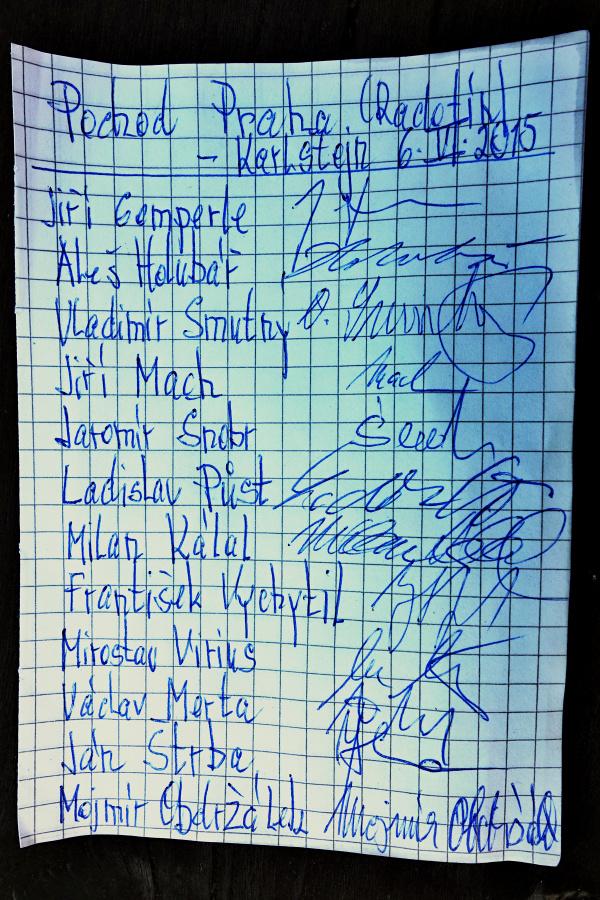 Pochod Praha (Radotín)
- Karlštejn 6. VI. 2015
Jiří Gemperle
Aleš Holubář
Vladimír Smutný
Jiří Mach Mach
Jaromír Šnobr
Ladislav Půst
Milan Kálal
František Vychytil
Miroslav Virius
Václav Merta
Ján Štrba
Mojmír Obdržálek Mojmír